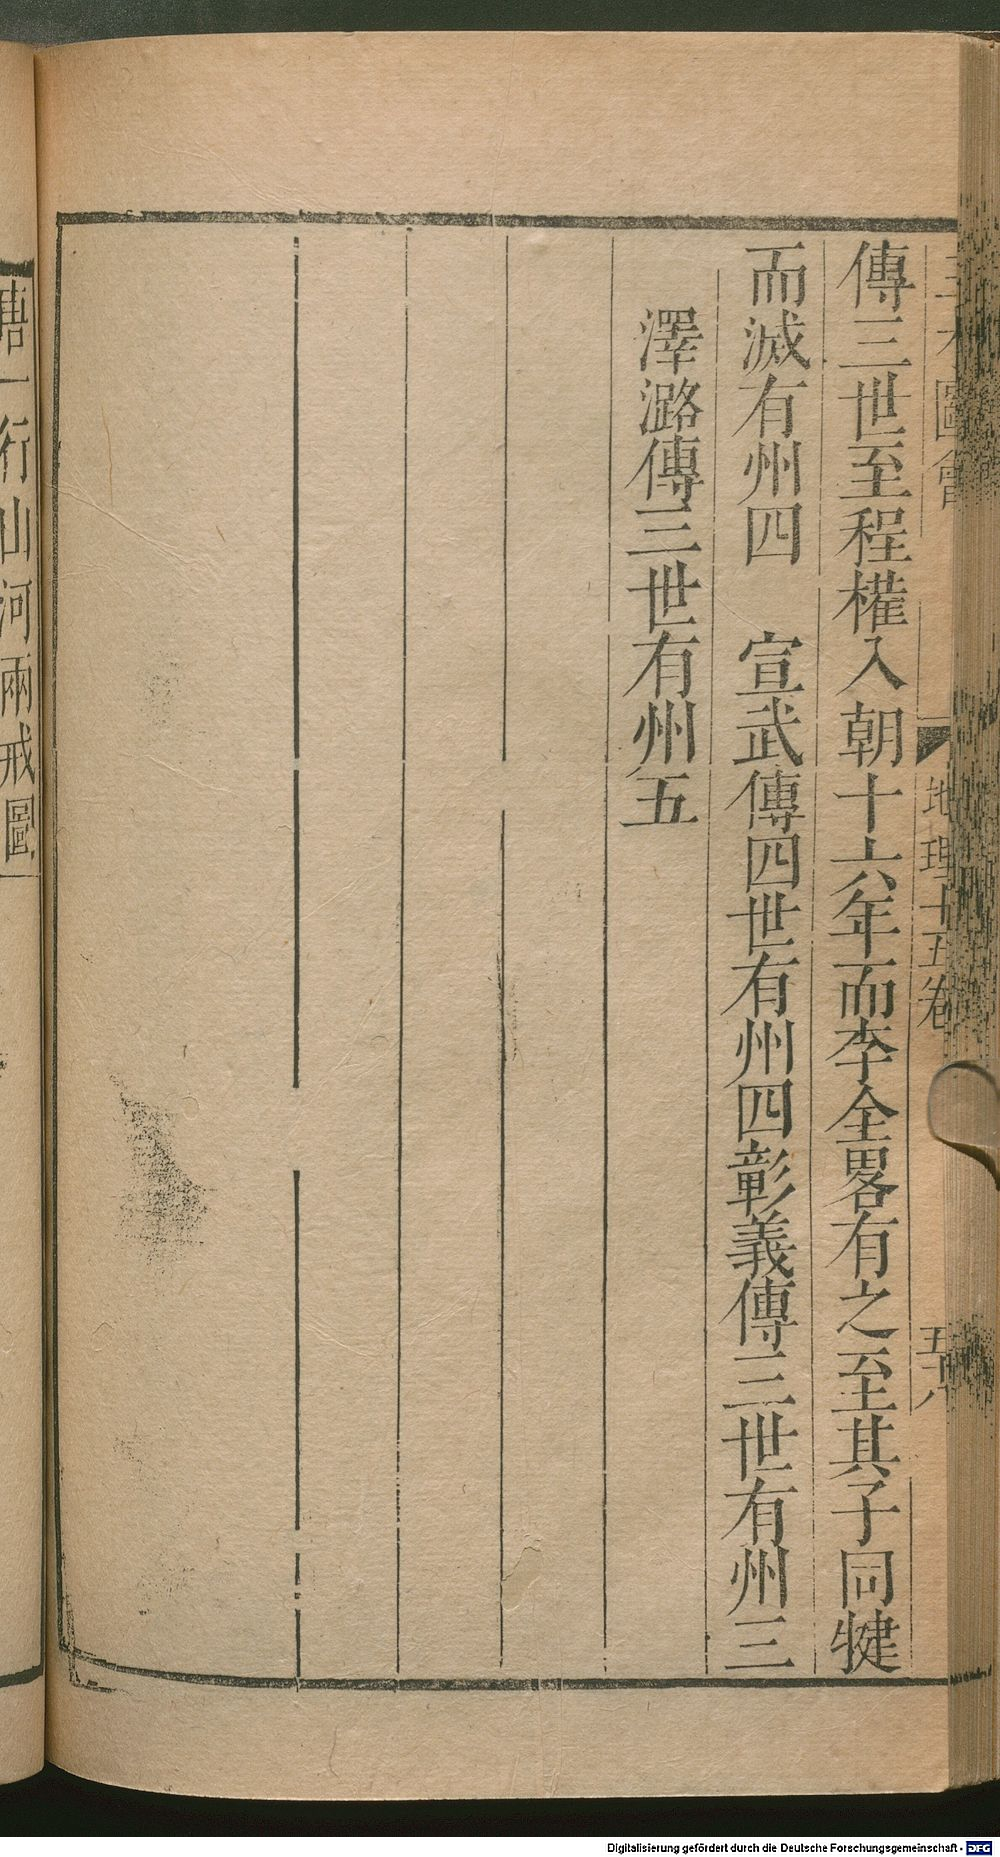 三才圖會 地理十五卷 五八
傳三世至程權入朝十六年而李全畧有之至其子同犍
而滅有州四 宣武傳四世有州四彰義傳三世有州三
澤潞傳三世有州五
唐一行山河兩戒圖
Digitalisierung gefördert durch die Deutsche Forschungsgemeinschaft - DFG